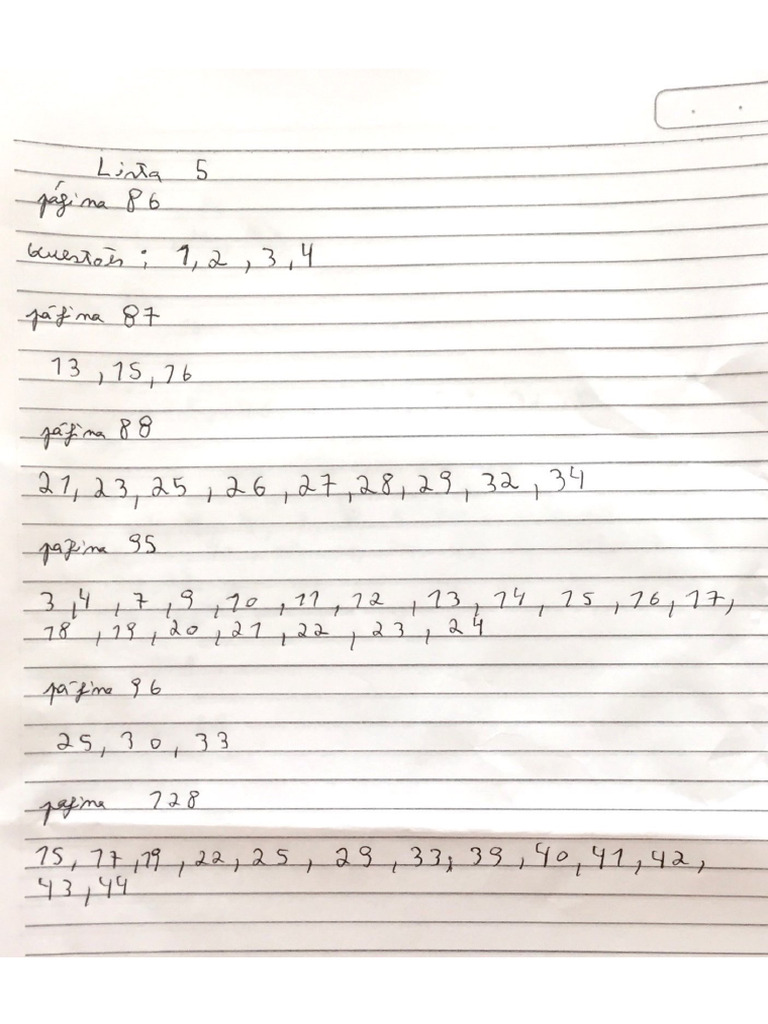 Lista 5
página 86
Questões: 1, 2, 3, 4
página 87
13, 15, 16
página 88
21, 23, 25, 26, 27, 28, 29, 32, 34
pagina 95
3, 4, 7, 9, 10, 11, 12, 13, 14, 15, 16, 17,
18, 19, 20, 21, 22, 23, 24
página 96
25, 30, 33
pagina 128
15, 17, 19, 22, 25, 29, 33, 39, 40, 41, 42,
43, 44